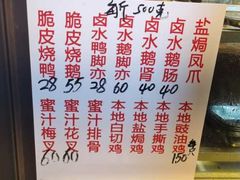 新 500g
脆皮烧鸭 28
脆皮烧鹅 55
卤水鸭脚亦 28
卤水鹅脚亦 60
卤水鹅肾 40
卤水鹅肠 40
盐焗凤爪
蜜汁梅叉 60
蜜汁花叉 60
蜜汁排骨
本地白切鸡
本地盐焗鸡
本地手撕鸡
本地豉油鸡 150